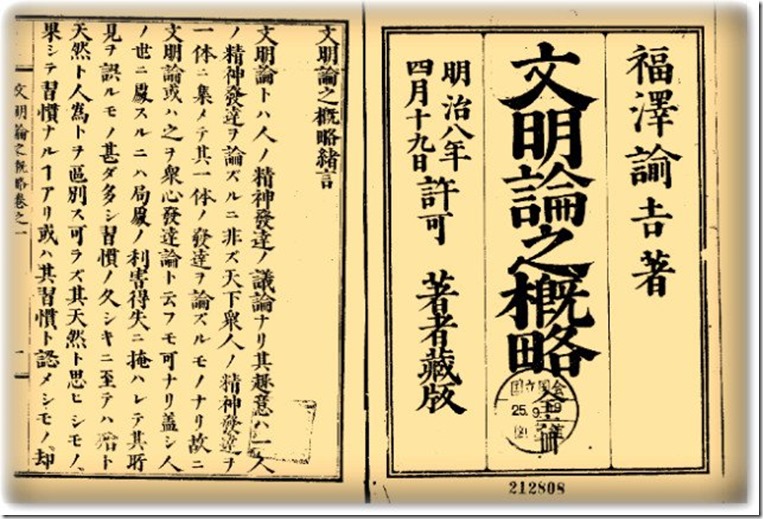 福澤諭吉著
文明論之概略
全六冊
明治八年
四月十九日
許可
著者藏版
国立国会
25.9.
212808
文明論之概略緒言
文明論トハ人ノ精神發達ノ議論ナリ其趣意ハ一人
ノ精神發達ヲ論ズルニ非ズ天下衆人ノ精神發達ヲ
一体ニ集メテ其一体ノ發達ヲ論ズルモノナリ故ニ
文明論或ハ之ヲ衆心發達論ト云フモ可ナリ盖シ人
ノ世ニ處スルニハ局處ノ利害得失ニ掩ハレテ其所
見ヲ誤ルモノ甚ダ多シ習慣ノ久シキニ至テハ殆ト
天然ト人為トヲ區別ス可ラズ其天然ト思ヒシモノ
果シテ習慣ナルヿアリ或ハ其習慣ト認メシモノ却
文明論之概略巻之一
一